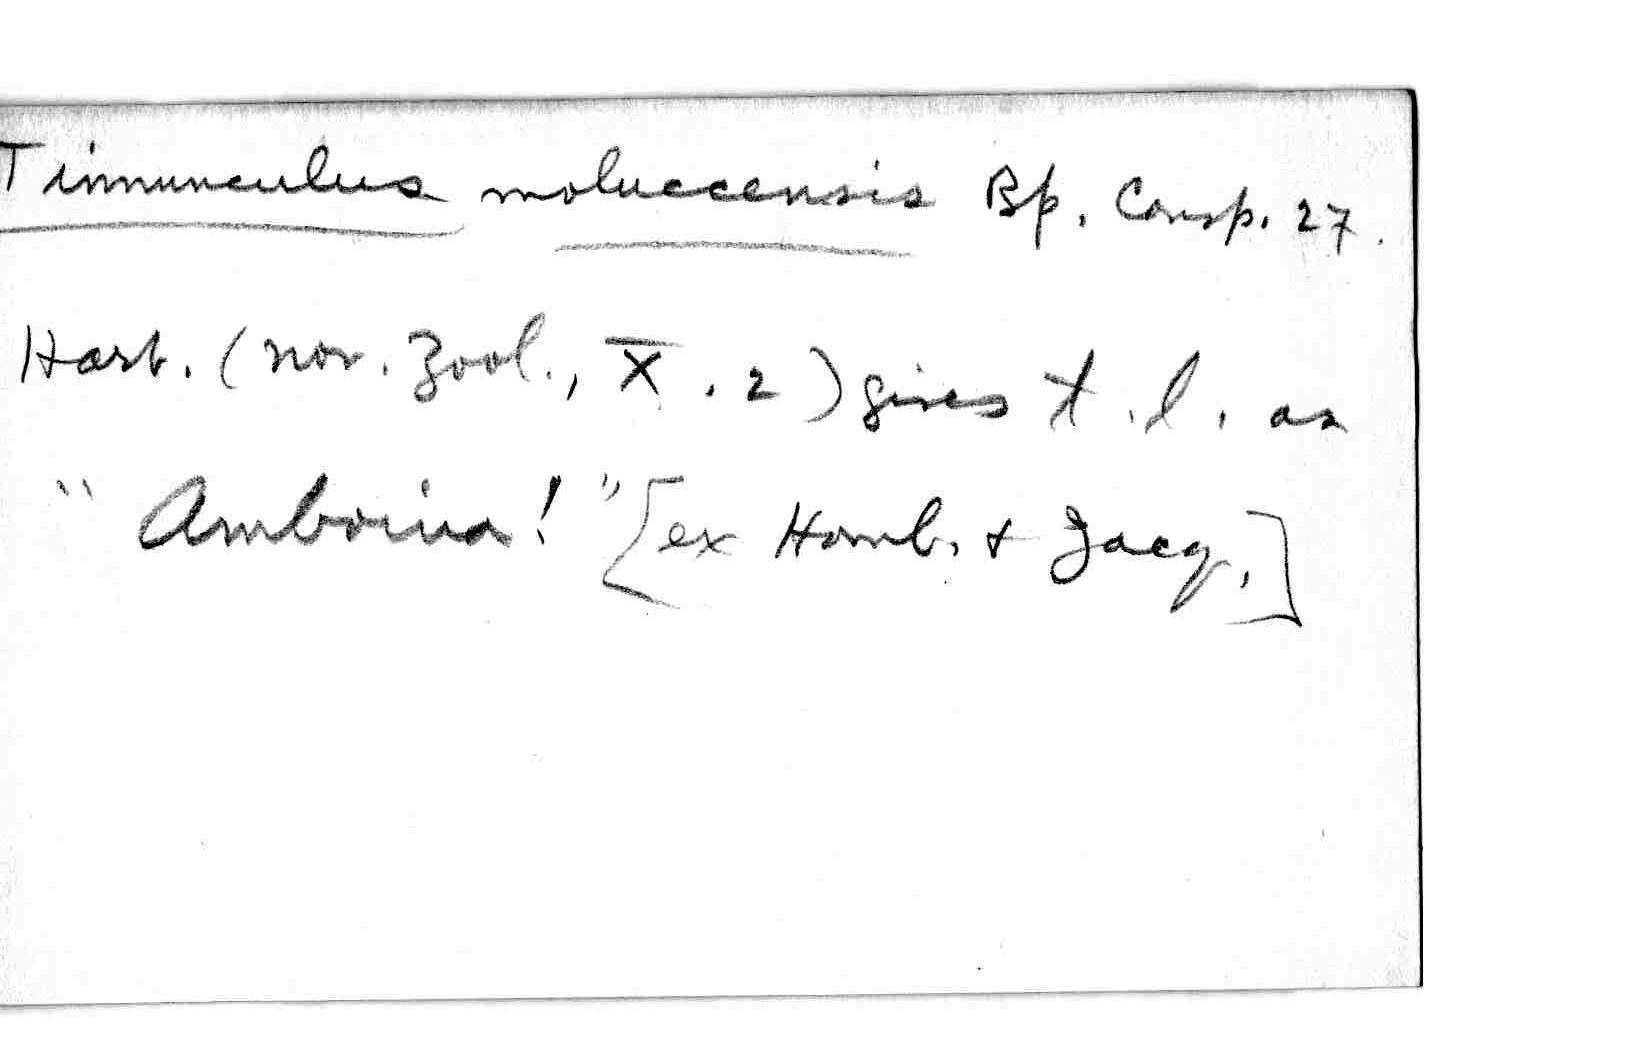 Tinnunculus moluccensis Bp. Consp. 27.
Hart. (Nov. Zool., X. 2) gives t.l. as
"Amboina!" [ex Homb. + Jacq.]